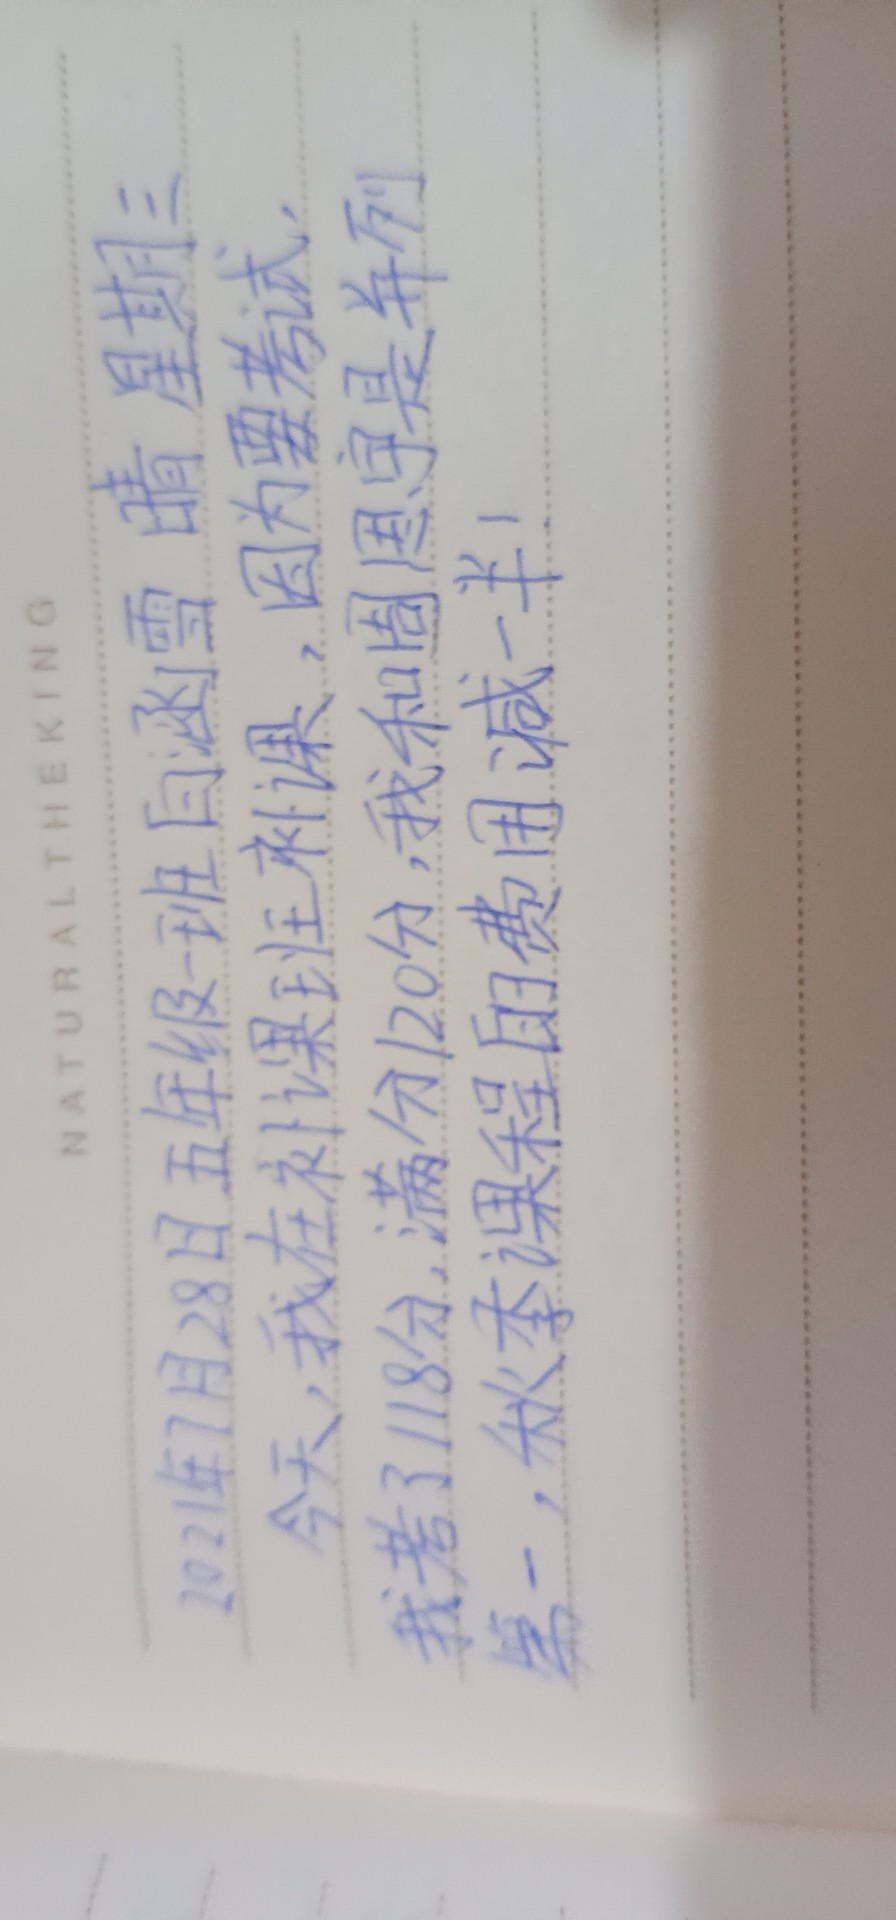 NATURALTHEKING
2021年7月28日五年级一班白涵雪 晴 星期三
今天,我在补课班补课,因为要考试,
我考了118分,满分120分,我和周恩宇是并列
第一,秋季课程的费用减一半!